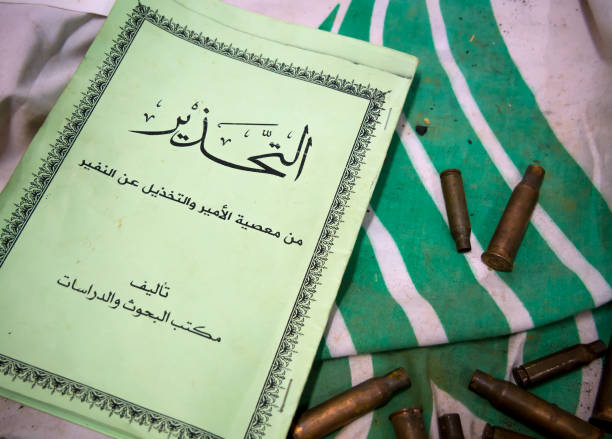 التّحذير
من معصية الأمير والتخذيل عن النفير
تأليف
مكتب البحوث والدراسات